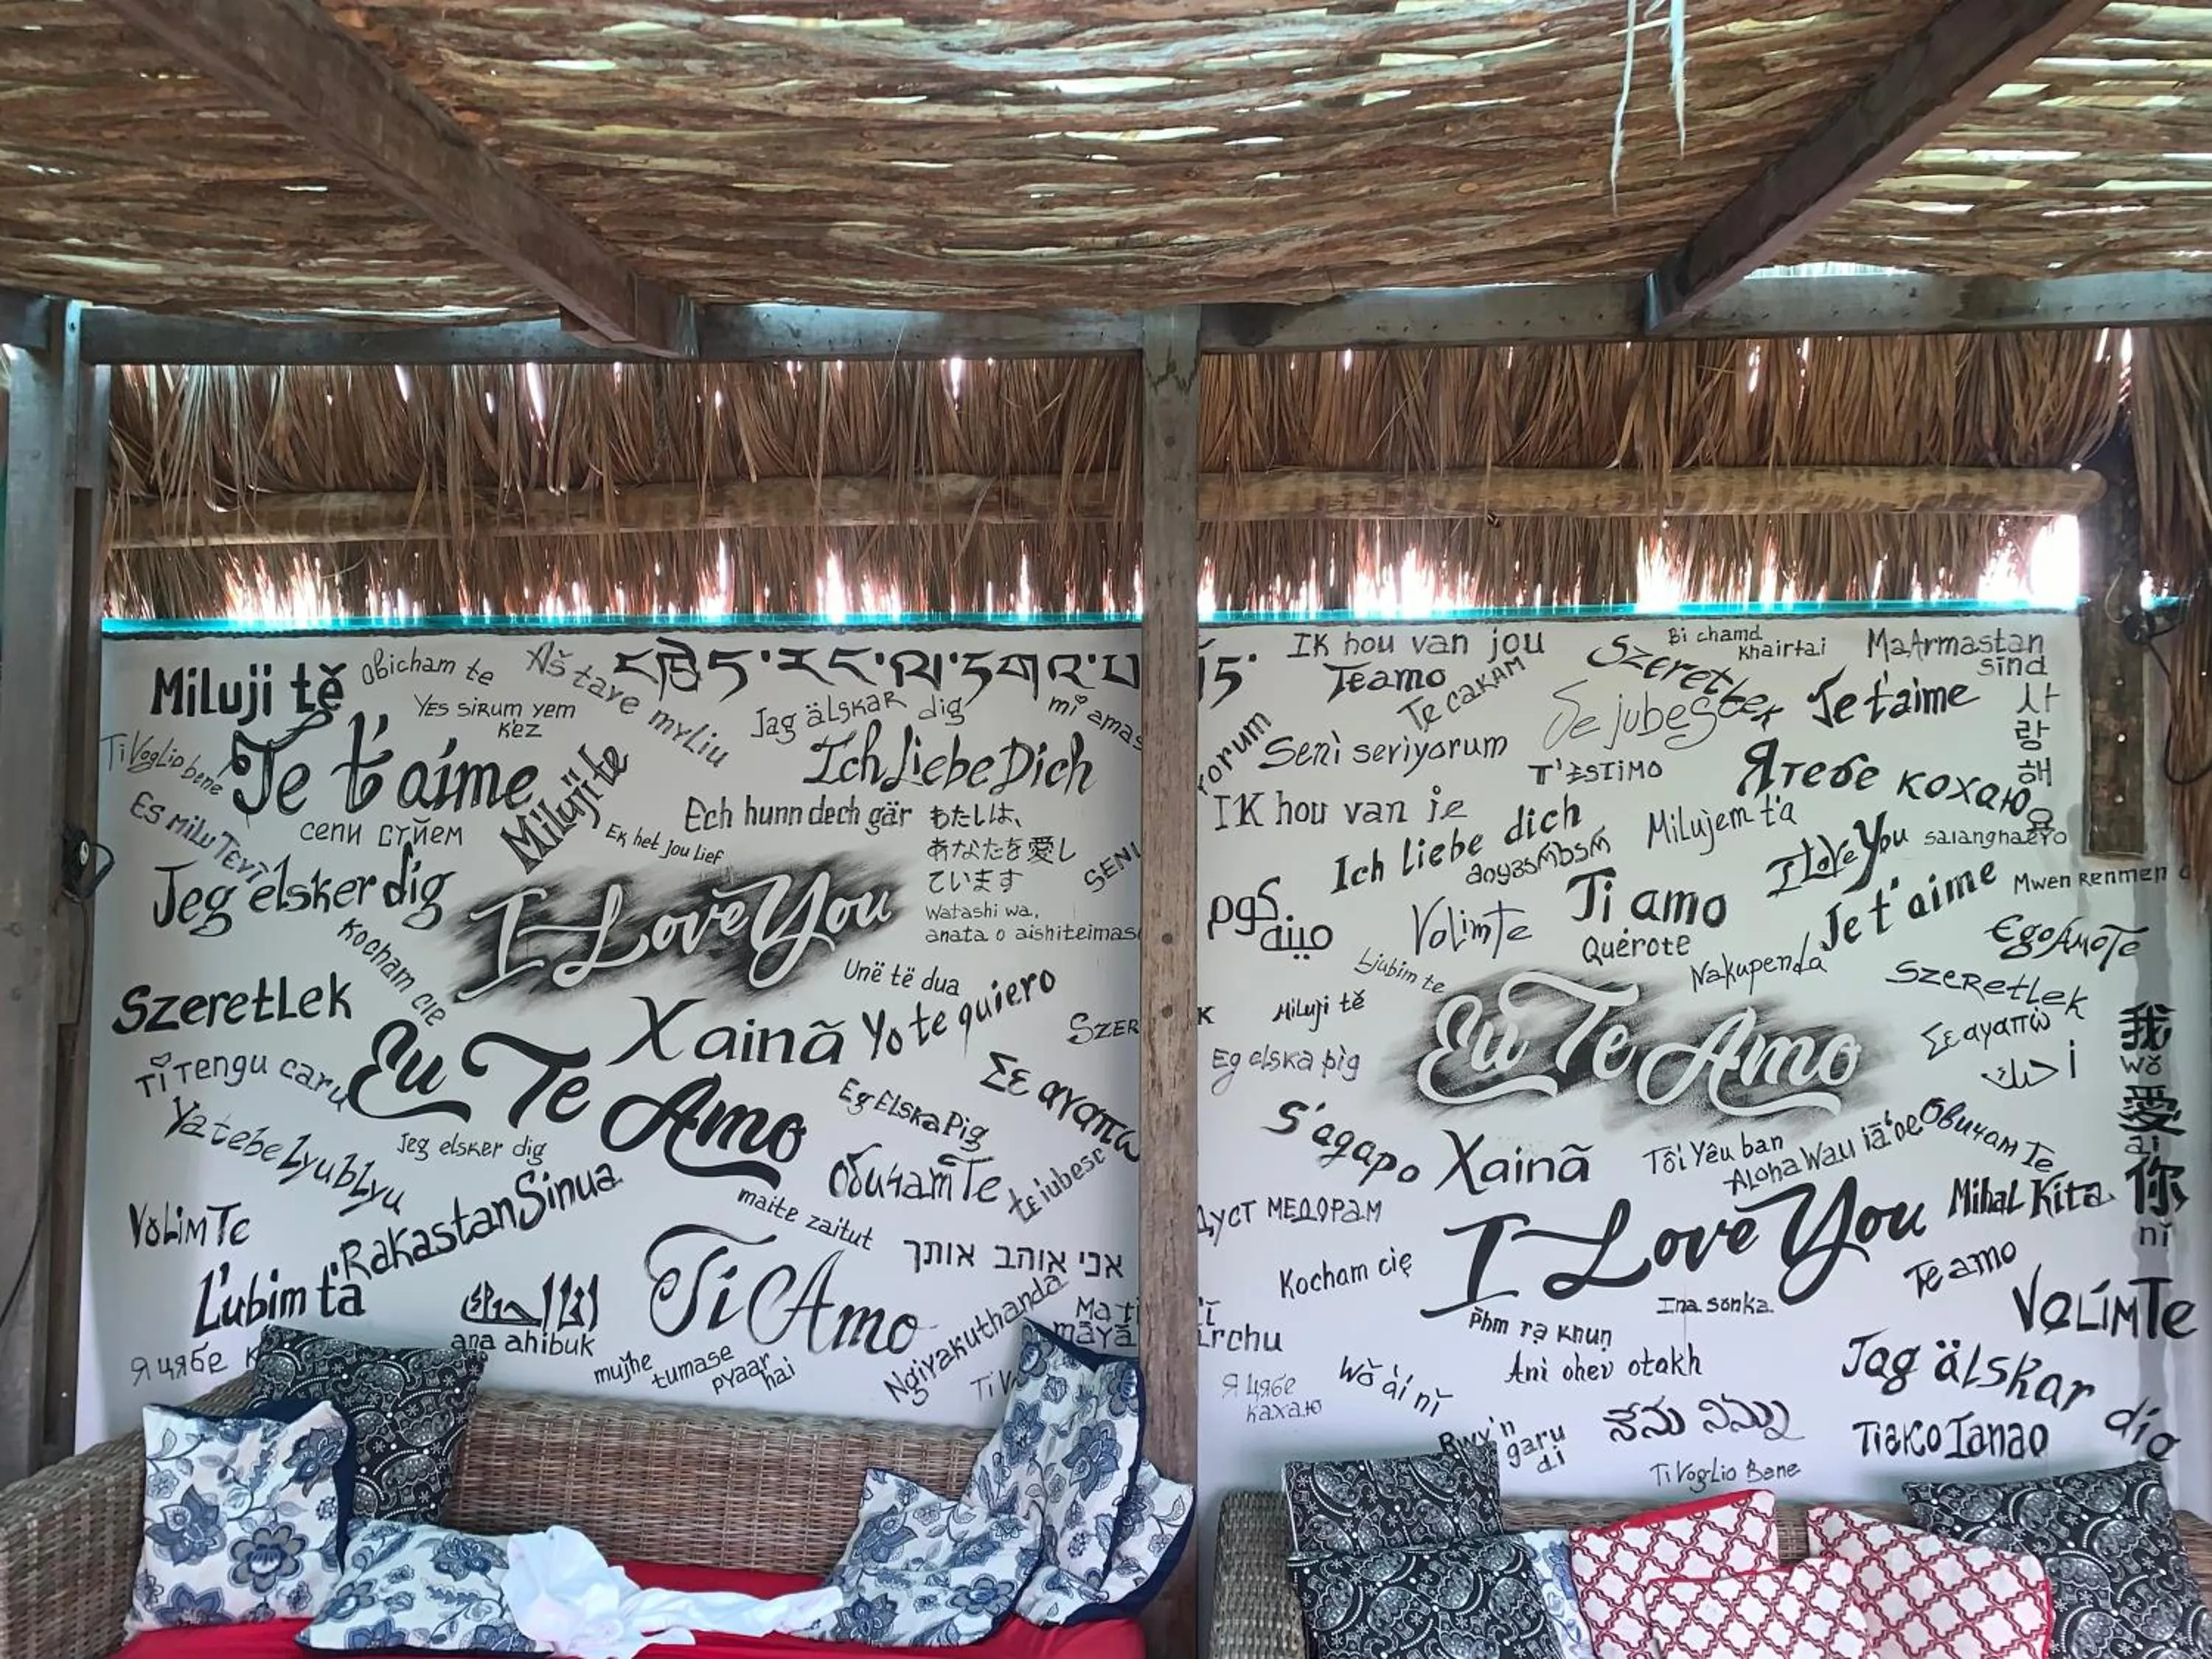 Miluji tě
Obicham te
Aš tave myliu
Yes sirum yem
kez
Jag älskar dig
mi amas
Ti Voglio bene
Je t'aime
Miluji te
Ich Liebe Dich
Es milu Tevi
сепи сүйем
Ek het jou lief
Ech hunn dech gär
わたしは、
あなたを愛し
ています
Watashi wa,
anata o aishiteimas
SENI
Jeg elsker dig
I Love You
Kocham cie
Unë të dua
Szeretlek
Xainã
Yo te quiero
SZER
Σε αγαπω
Ti Tengu caru
Eu Te Amo
Eg Elska Pig
Ya tebe Lyublyu
Jeg elsker dig
Обичам Те
te iubesc
Volim Te
Rakastan Sinua
maite zaitut
אני אוהב אותך
Ľubim ťa
ana ahibuk
Ti Amo
Ngiyakuthanda
Ma ti
māyā
Я цябе к
mujhe
tumase
pyaar
hai
Ti V
IK hou van jou
Te amo
Te Cakam
Szeretlek
Bi chamd
khairtai
Ma Armastan
sind
사
랑
해
요
orum
Seni seriyorum
Se jubeseter
Je t'aime
T'estimo
Я тебе кохаю
IK hou van je
Ich liebe dich
Milujem ťa
I Love You
salanghaeyo
Volim Te
Ti amo
Querote
Je t'aime
Mwen Renmen
Ego Amo Te
Ljubim te
Nakupenda
Szeretlek
K
Miluji tě
Eu Te Amo
Σε αγαπώ
我
wǒ
愛
ài
你
nǐ
Eg elska pig
S'agapo
Xainã
Tôi Yêu ban
Aloha Wau iā'oe
Обичам Те
Дуст МЕДОРАМ
I Love You
Mihal Kita
Kocham cię
Te amo
Ina sonka
Volím Te
Phm rạ khuṇ
Ani ohev otakh
Я цябе
кахаю
Wǒ ài nǐ
Jag älskar dig
Rwy'n
garu
di
ನೇನು ನಿನ್ನು
Tiako Ianao
Ti Voglio Bene